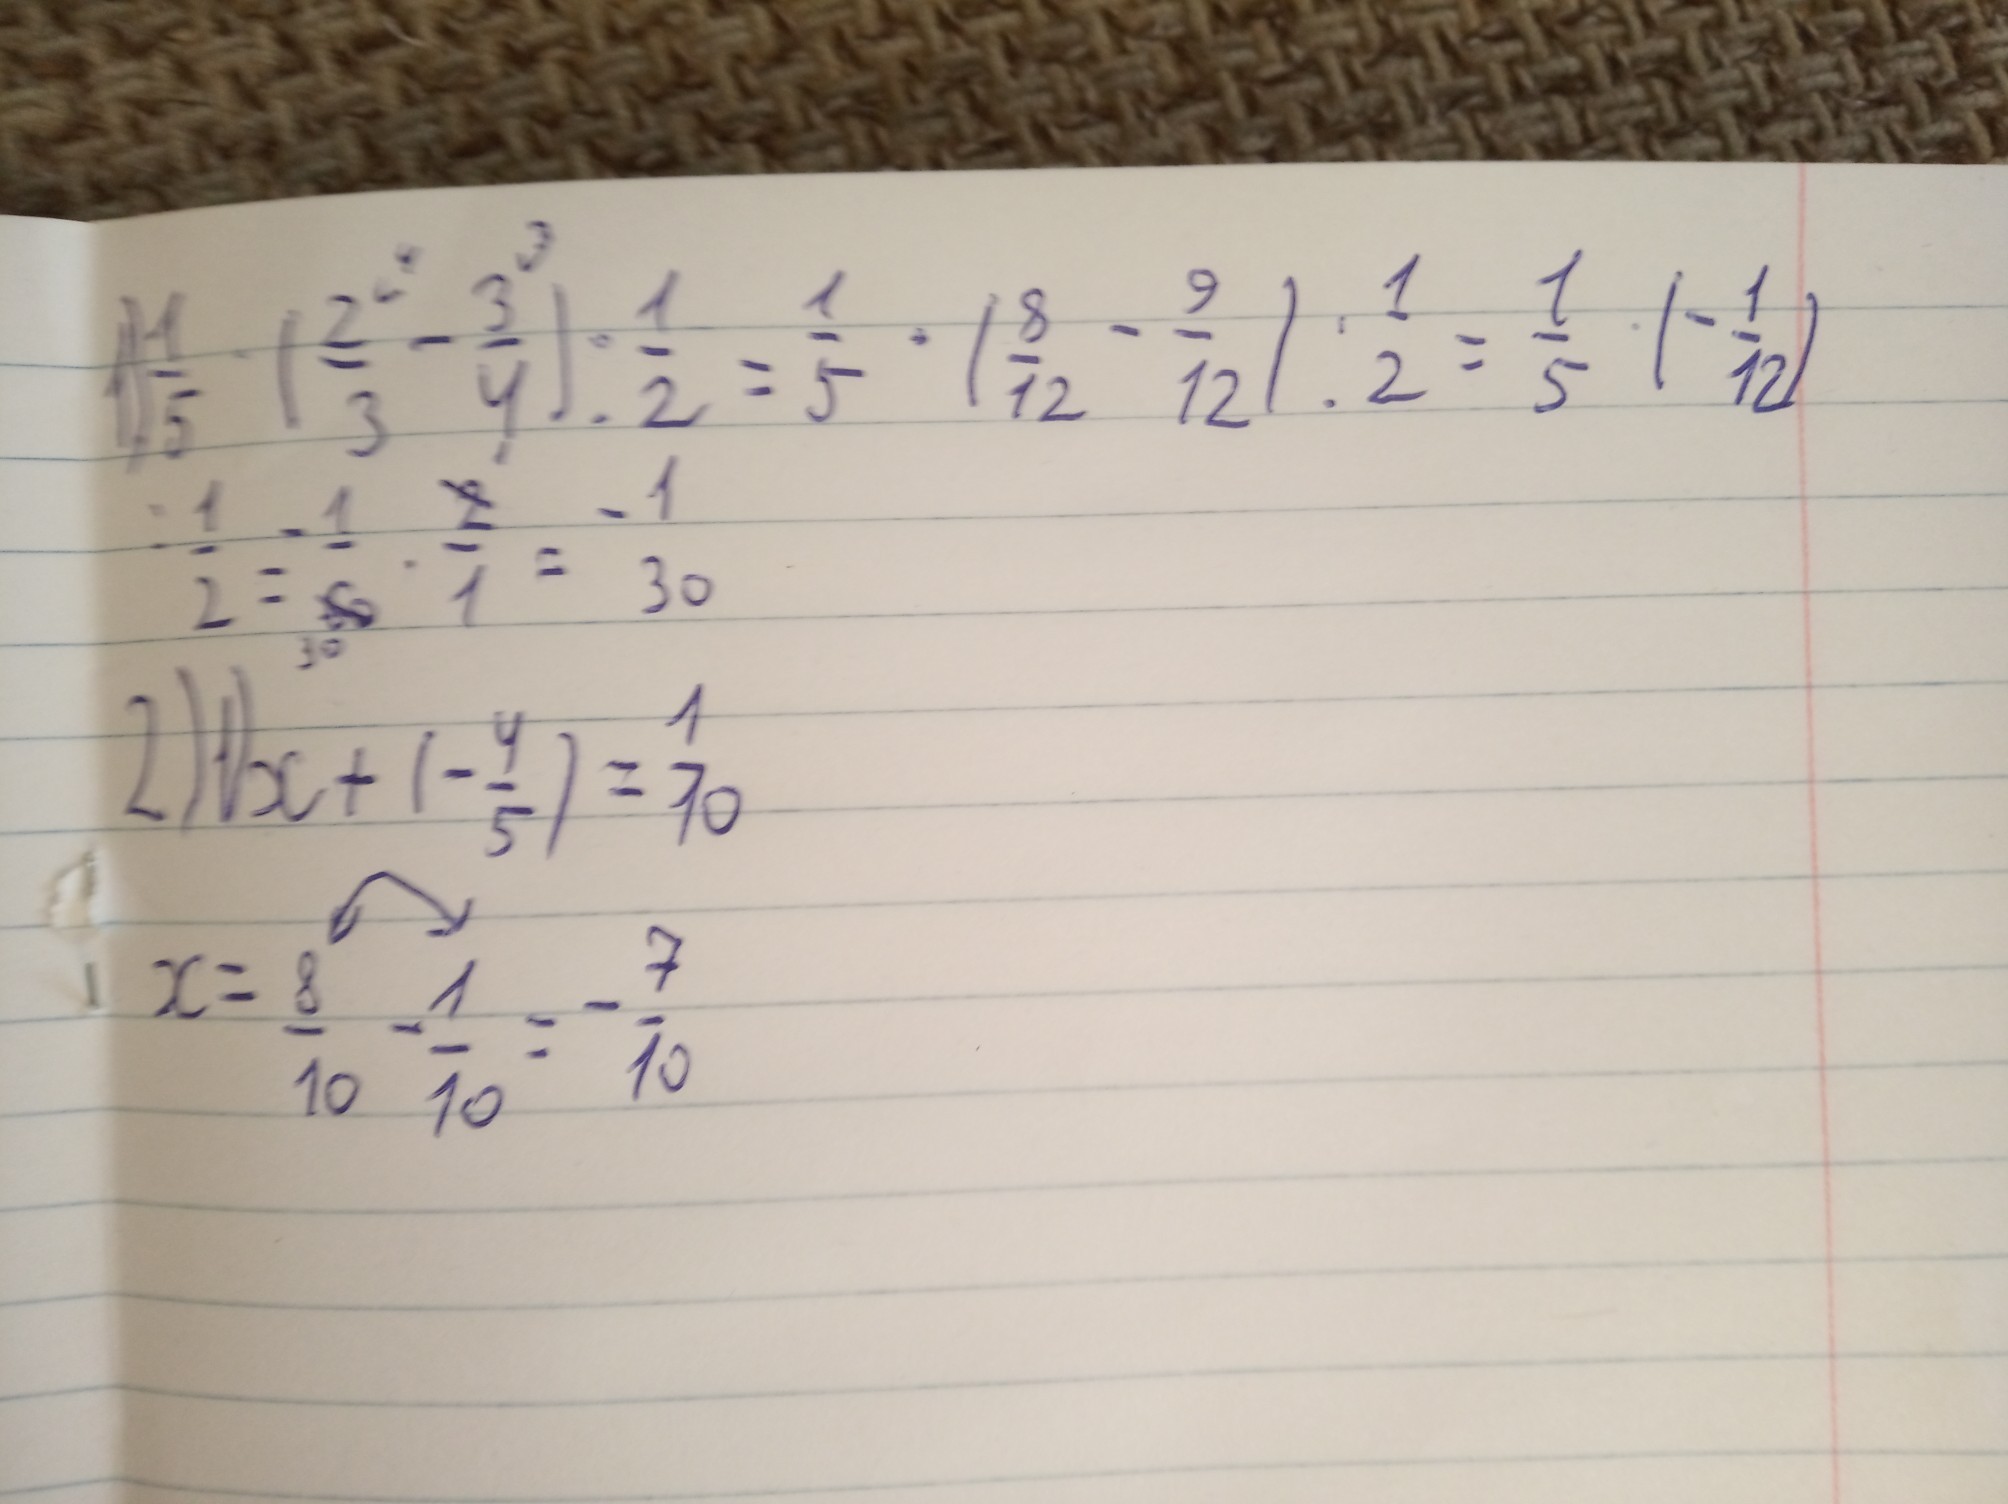 1) 1/5 · (2/3 ⁴ - 3/4 ³) : 1/2 = 1/5 · (8/12 - 9/12) : 1/2 = 1/5 · (-1/12)
: 1/2 = -1/60 30 · 2/1 = -1/30
2) 1) x + (-4/5) = 1/10
x = 8/10 - 1/10 = -7/10